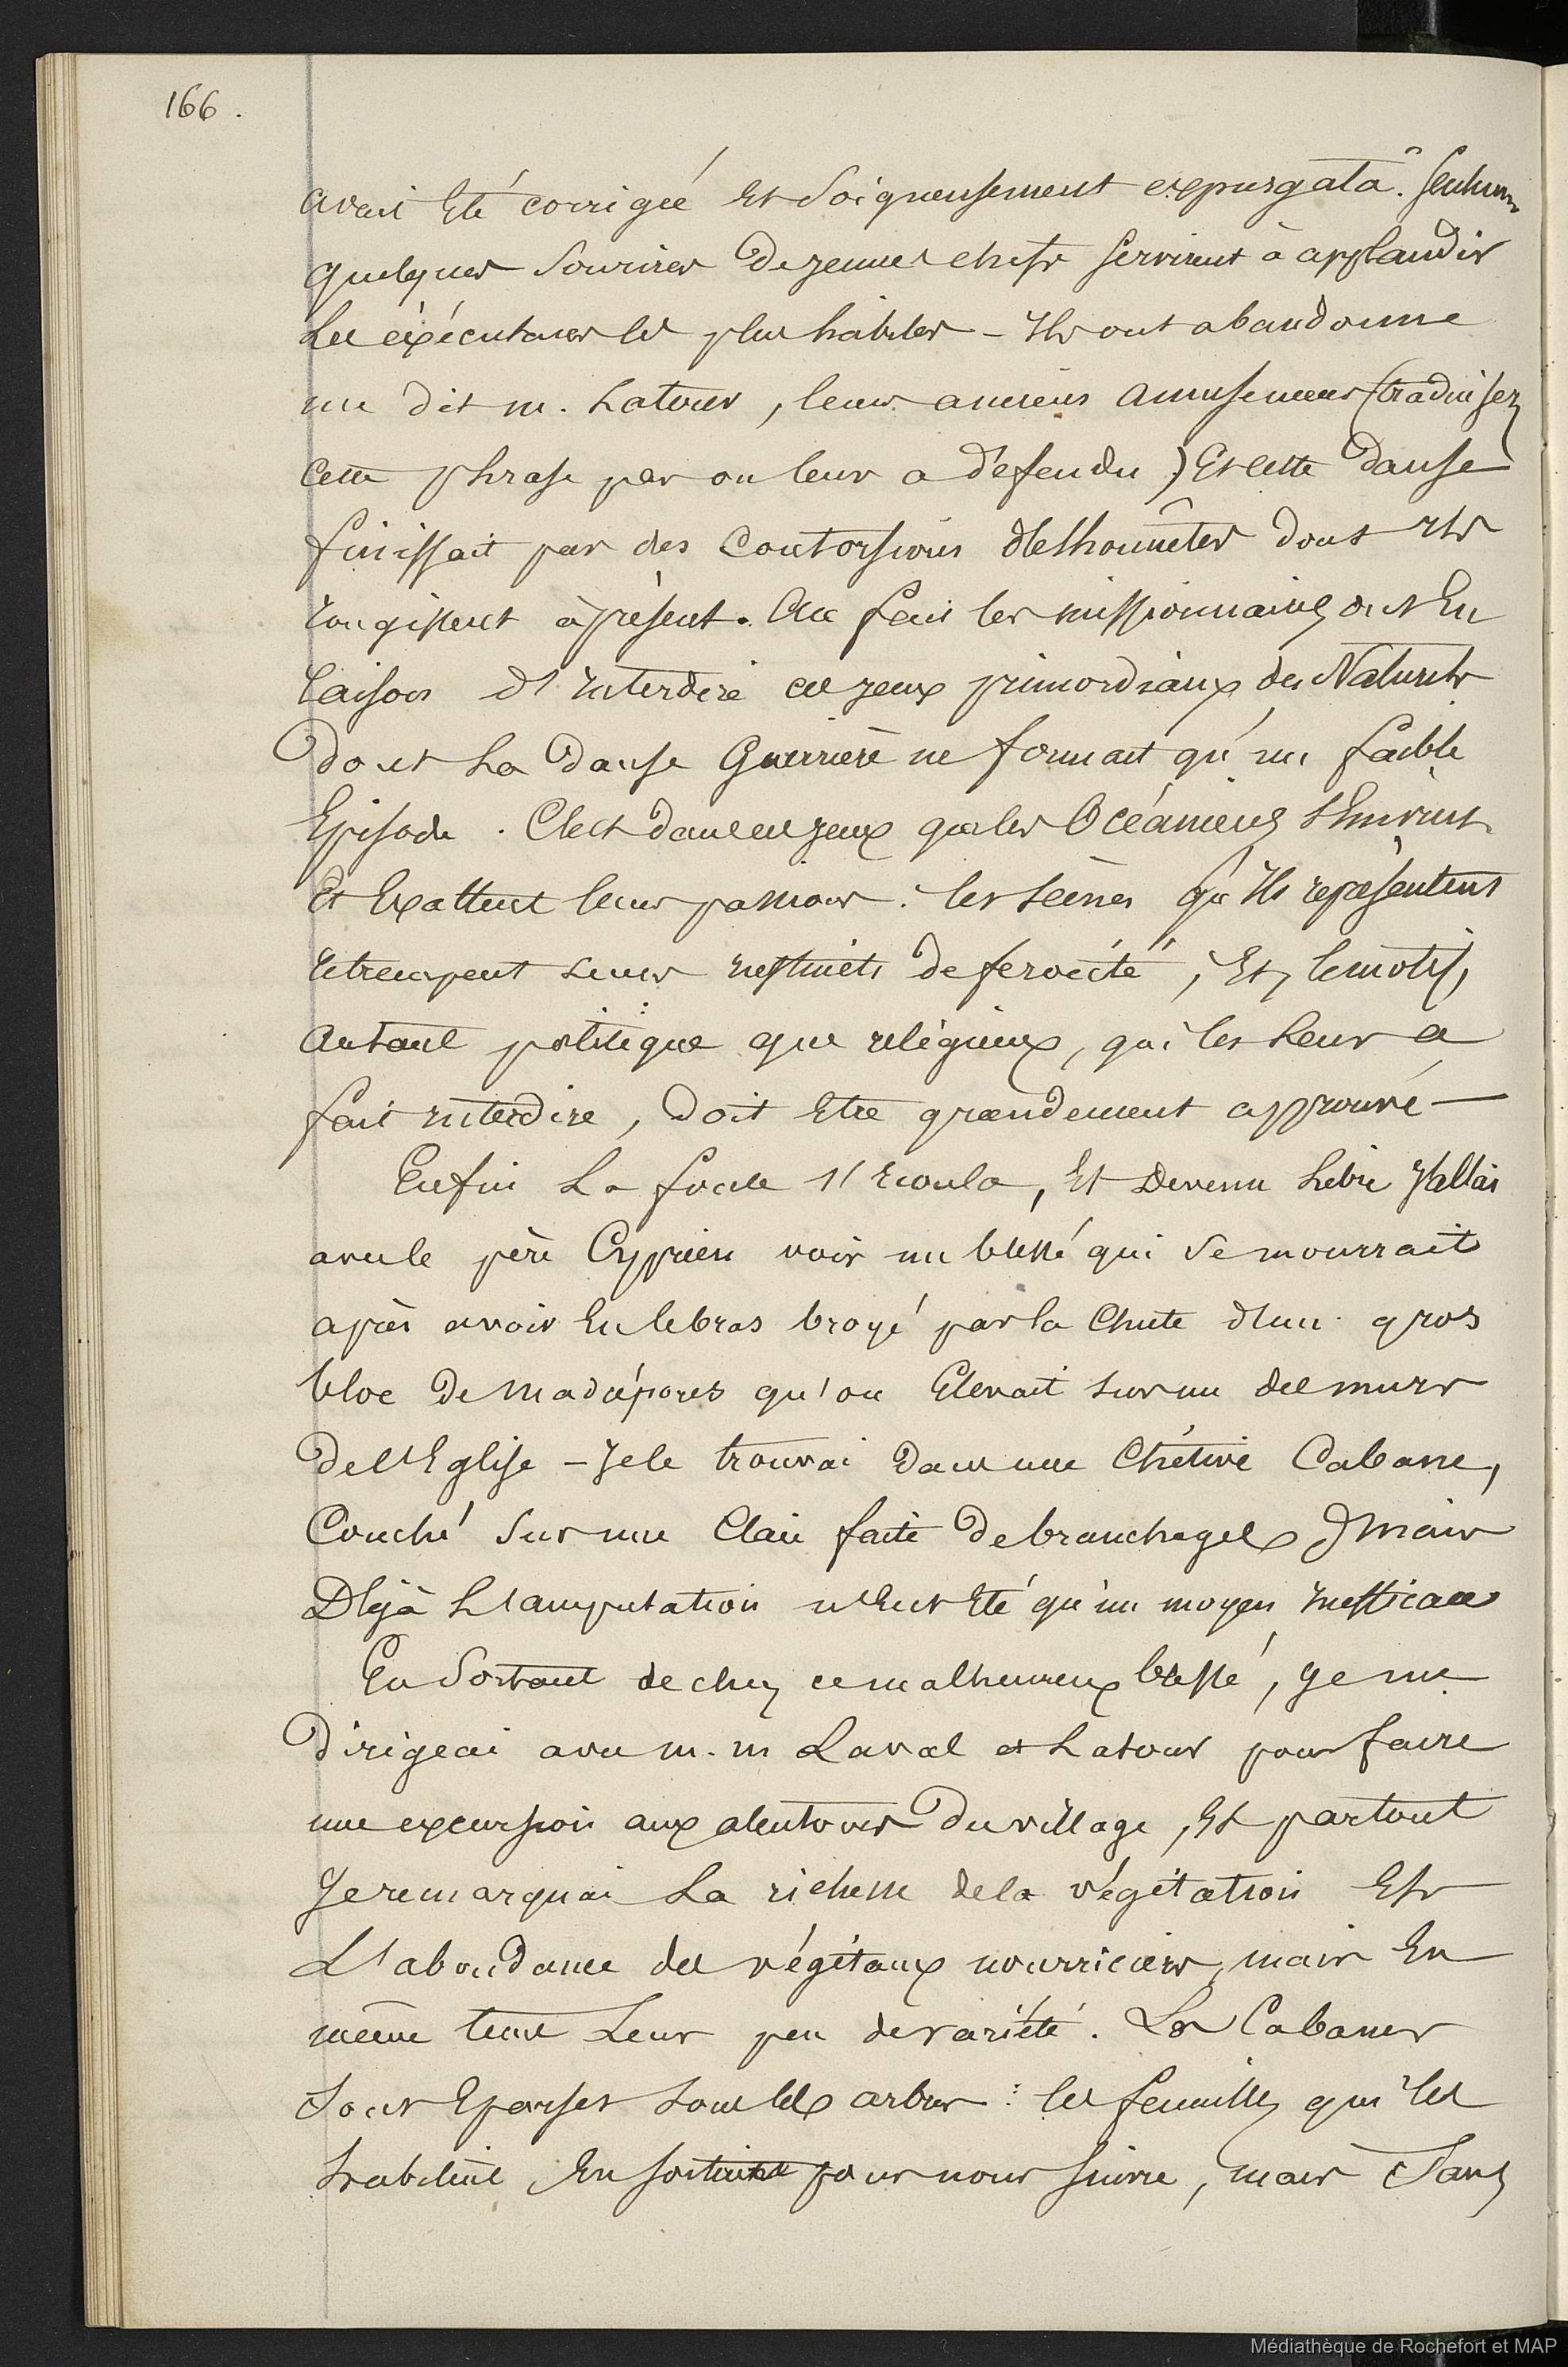 166.
avait Eté corrigée Et Soigneusement expurgata. Seulement
quelques Sourires De jeunes chefs Servirent à applaudir
Les éxécutans les plus habiles - Ils ont abandonné
me dit m. Latour, leurs anciens amusemens (traduisez
Cette phrase par on leur a défendu) Et cette Danse
finissait par des Contorsions d'Eshonnêtes Dont Ils
rougissent à présent. Au fait les missionnaires ont Eu
raison d'Interdire ces jeux primordiaux des Naturels
Dont La Danse Guerrière ne formait qu'un faible
Episode. C'est dans ces jeux que les Océaniens s'Enivrent
Et Exaltent leurs passions. les scènes qu'Ils représentent
retrempent leurs instincts de férocité, Et, le motif,
autant politique que religieux, qui les Leur a
fait interdire, Doit Etre grandement approuvé —
Enfin La foule s'Ecoula, Et Devenu Libre J'allai
avec le père Cyprien voir un blessé qui Se mourrait
après avoir Eu le bras broyé par la Chute d'un gros
bloc De Madrépores qu'on Elevait sur un des murs
De l'Eglise - Je le trouvai Dans une Chétive Cabane,
Couché Sur une Claie faite De branchages Mais
Déjà L'amputation n'Eut Eté qu'un moyen Inefficace
En Sortant de chez ce malheureux blessé, Je me
Dirigeai avec m. m Laval et Latour pour faire
une excursion aux alentours Du village, Et partout
Je remarquai La richesse de la végétation Et
L'abondance des végétaux nourriciers, mais En
même tems Leur peu de variété. Les Cabanes
Sont Eparses sous les arbres : les familles qui les
habitent En sortirent pour nous Suivre, mais Sans
Médiathèque de Rochefort et MAP